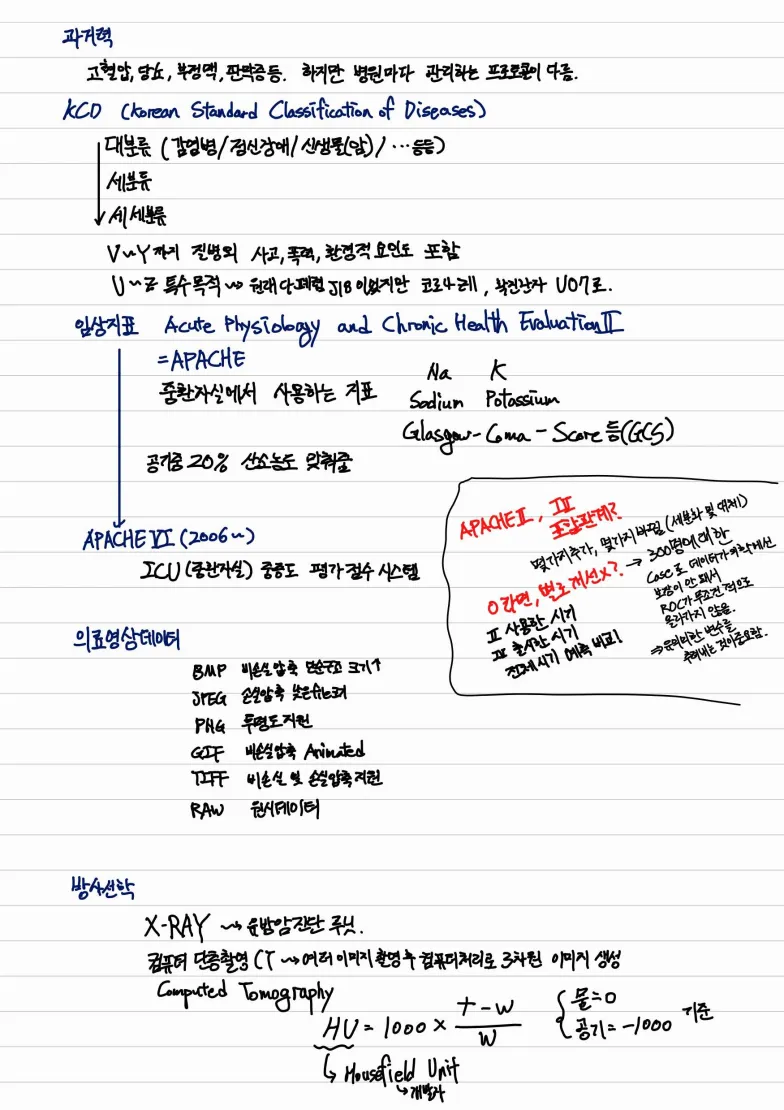 과거력
고혈압, 당뇨, 부정맥, 판막증등. 하지만 병원마다 관리하는 프로토콜이 다름.
KCD (Korean Standard Classification of Diseases)
대분류 (감염병/정신장애/신생물(암)/ ... 등등)
세분류
세세분류
V~Y까지 질병외 사고, 폭력, 환경적 요인도 포함
U~Z 특수목적 ↝ 원래 J18 이었지만 코로나 , U07로.
임상지표 Acute Physiology and Chronic Health Evaluation II
=APACHE
중환자실에서 사용하는 지표
Na K
Sodium Potassium
Glasgow-Coma-Score 등(GCS)
공기중 20% 산소농도 맞춰줌
APACHE VI (2006~)
ICU (중환자실) 중증도 평가 점수 시스템
APACHE II, IV
포함관계?
몇가지추가, 몇가지 바뀜 (세분화 및 대체)
0라면, 별로 개선x? → 300명에 대한
Case로 데이터가
보장이 안돼서
ROC가 무조건적으로
올라가지 않음.
⇒유의미한 변수를
추려내는 것이중요함.
II 사용한 시기
IV 출시한 시기
전체시기 예측 비교!
의료영상데이터
BMP 비손실압축 단순구조 크기↑
JPEG 손실압축 낮은file크기
PNG 투명도지원
GIF 비손실압축 Animated
TIFF 비손실 및 손실압축지원
RAW 원시데이터
방사선학
X-RAY ↝ 유방암진단 루닛.
컴퓨터 단층촬영 CT ↝ 여러 이미지 촬영후 컴퓨터처리로 3차원 이미지 생성
Computed Tomography
HU = 1000 × (T-W)/W { 물=0 공기=-1000 기준
↳ Housefield Unit
↳개발자